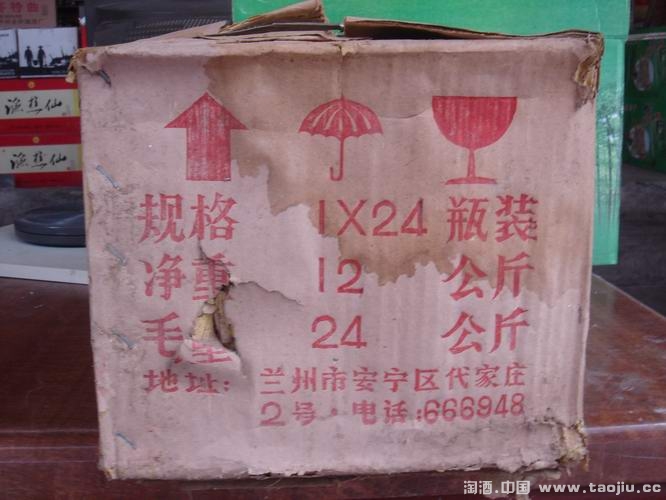 渔樵仙
渔樵仙
规格 1X24 瓶装
净重 12 公斤
毛重 24 公斤
地址: 兰州市安宁区代家庄
2号·电话:666948
淘酒.中国 www.taojiu.cc